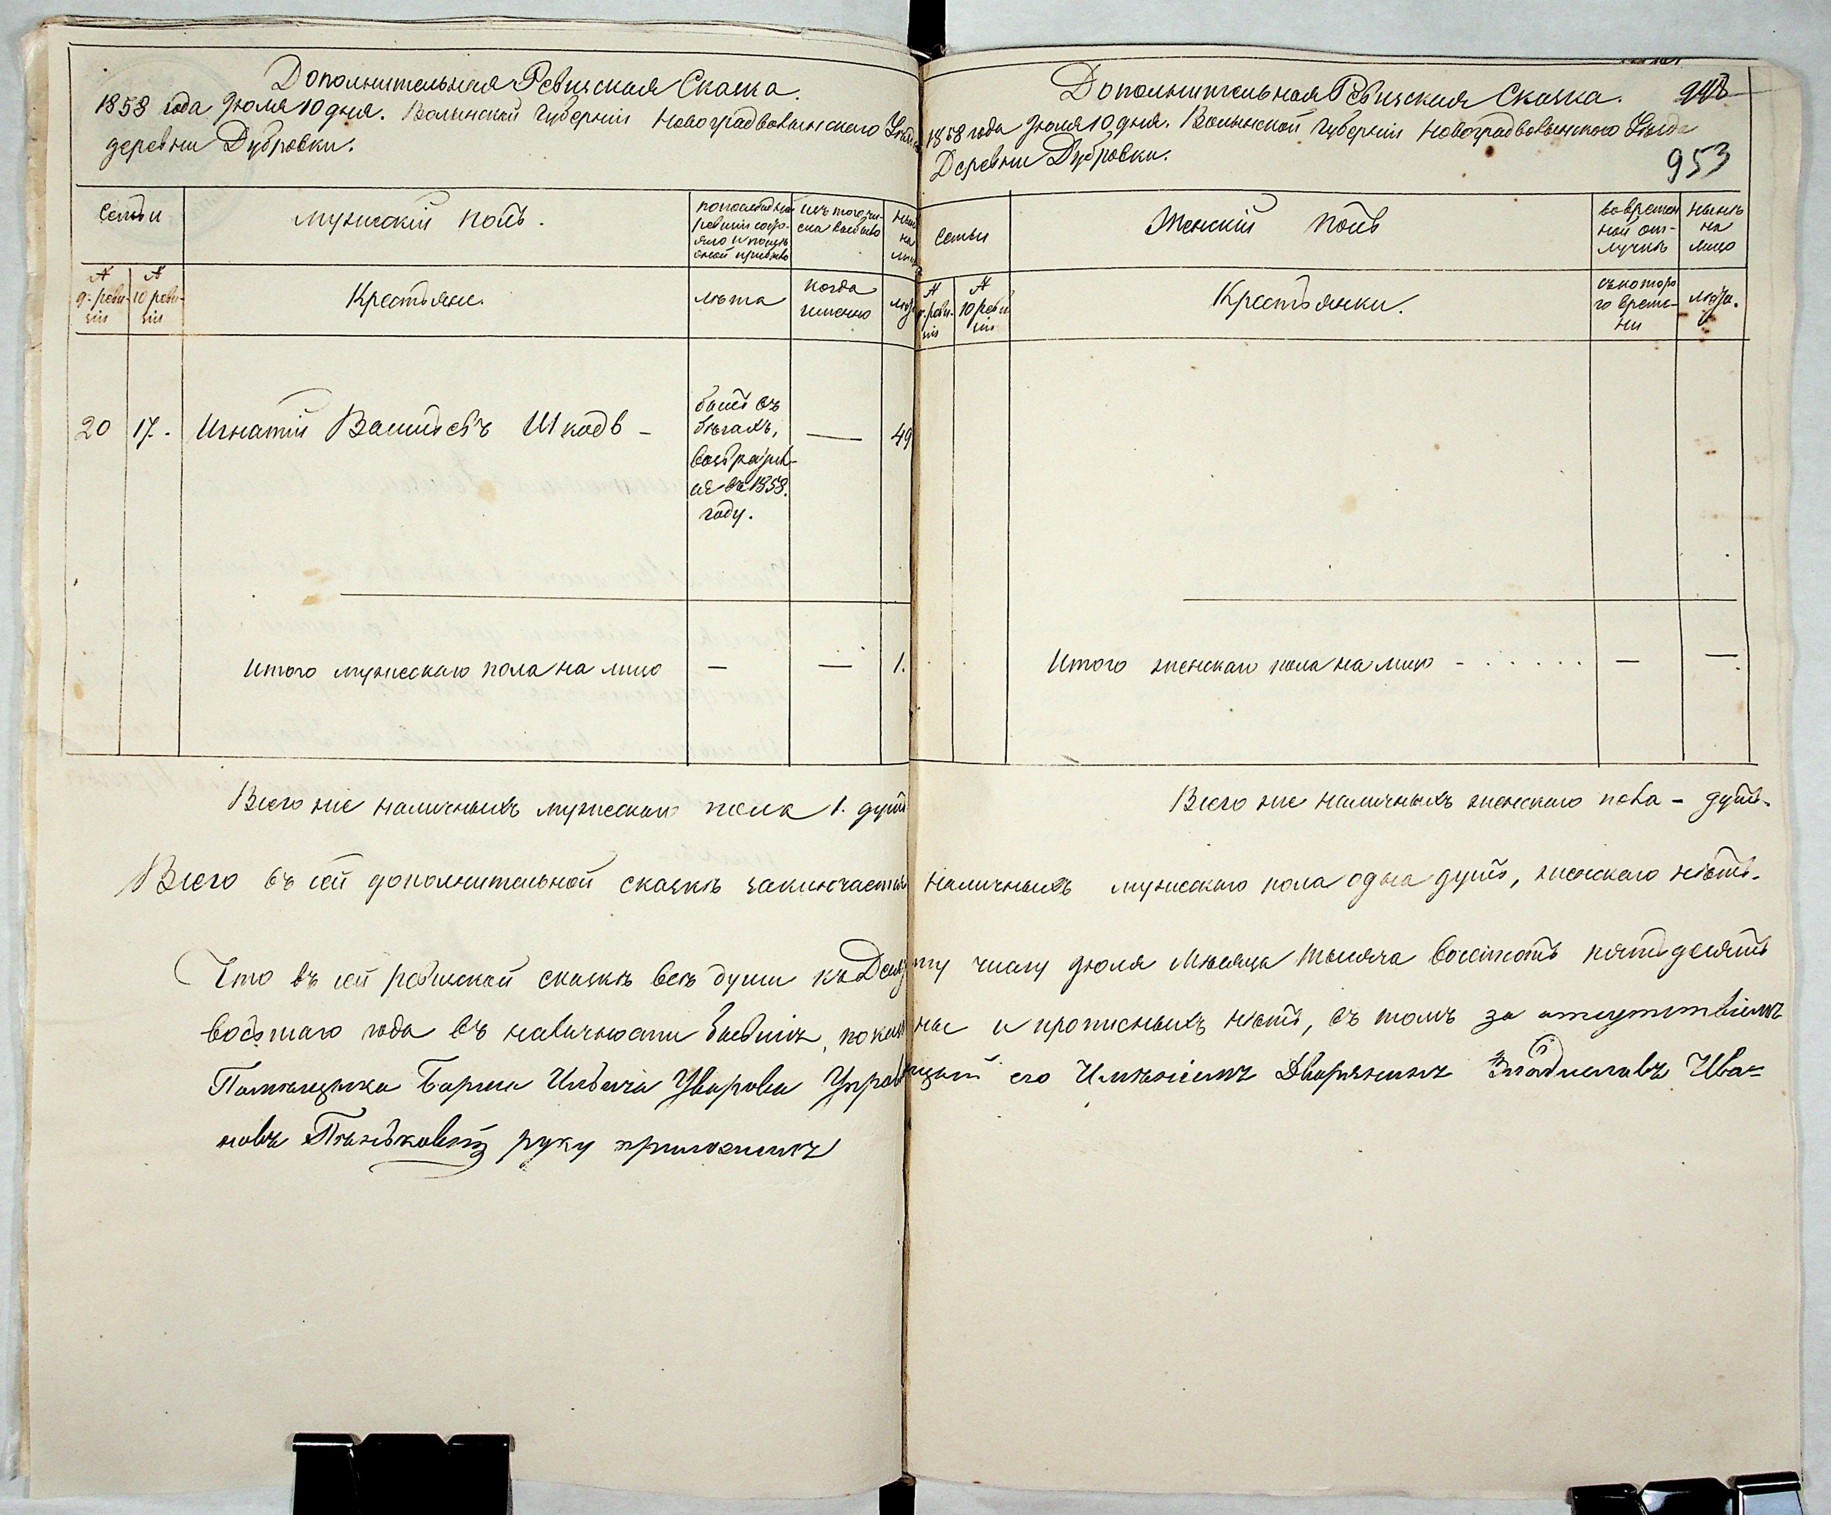 Дополнительная Ревизская Сказка.
1858 года Июля 10 дня. Волынской Губерніи Новоградволынского Уезда
деревни Дубровки.
Семьи
Мужескій полъ.
по последней ревизіи состояло и после оной прибыло
изъ того числа выбыло
ныне на лицо
№ 9. ревизіи
№ 10 ревизіи
Крестьяне.
лѣта
когда именно
лѣта
20 17. Игнатій Васильевъ Шкодъ — былъ въ бѣгахъ, возвратился въ 1858. году. — 49
Итого мужескаго пола на лицо — — 1.
Всего же наличныхъ мужескаго пола 1. душа
Дополнительная Ревизская Сказка.
953
1858 года Июля 10 дня. Волынской Губерніи Новоградволынского Уезда
Деревни Дубровки.
Семьи
Женскій полъ
во временной отлучкѣ
нынѣ на лицо
№ 9. ревизіи
№ 10 ревизіи
Крестьянки.
съ котораго времени
лѣта.
Итого женскаго пола на лицо - . . . . . . — —
Всего же наличныхъ женскаго пола - душъ.
Всего въ сей дополнительной сказкѣ заключается наличныхъ мужескаго пола одна душа, женскаго нѣтъ.
Что въ сей ревизской сказкѣ всѣ души къ Десятому числу Июля Мѣсяца тысяча восемьсотъ пятьдесятъ
восьмаго года въ наличности бывшія, показаны и прописныхъ нѣтъ, въ томъ за отсутствіемъ
Помѣщика Бориса Ильича Уварова Управляющій его Имѣніемъ Дворянинъ Владиславъ Ива=
новъ Пѣньковскій руку приложилъ